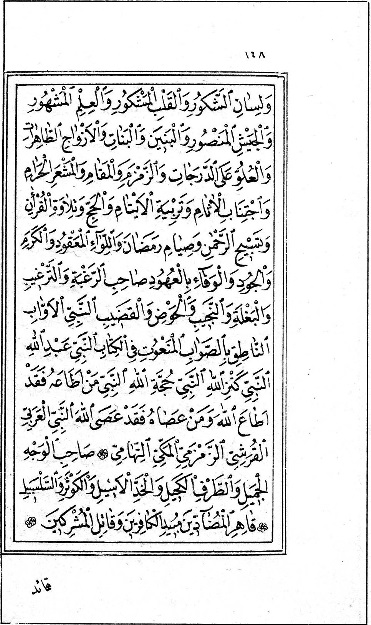 ١٦٨
وَلِسَانِ الشَّكُورِ وَالْقَلْبِ الْمَشْكُورِ وَالْعِلْمِ الْمَشْهُورِ
وَالْجَيْشِ الْمَنْصُورِ وَالْبَنِينَ وَالْبَنَاتِ وَالْأَزْوَاجِ الطَّاهِرَاتِ
وَالْعُلُوِّ عَلَى الدَّرَجَاتِ وَالزَّمْزَمِ وَالْمَقَامِ وَالْمَشْعَرِ الْحَرَامِ
وَاجْتِنَابِ الْآثَامِ وَتَرْبِيَةِ الْأَيْتَامِ وَالْحَجِّ وَتِلَاوَةِ الْقُرْآنِ
وَتَسْبِيحِ الرَّحْمٰنِ وَصِيَامِ رَمَضَانَ وَاللِّوَاءِ الْمَعْقُودِ وَالْكَرَمِ
وَالْجُودِ وَالْوَفَاءِ بِالْعُهُودِ صَاحِبِ الرَّغْبَةِ وَالتَّرْغِيبِ
وَالْبَغْلَةِ وَالنَّجِيبِ وَالْحَوْضِ وَالْقَضِيبِ النَّبِيِّ الْأَوَّابِ
النَّاطِقِ بِالصَّوَابِ الْمَنْعُوتِ فِي الْكِتَابِ النَّبِيِّ عَبْدِ اللهِ
النَّبِيِّ كَنْزِ اللهِ النَّبِيِّ حُجَّةِ اللهِ النَّبِيِّ مَنْ أَطَاعَهُ فَقَدْ
أَطَاعَ اللهَ وَمَنْ عَصَاهُ فَقَدْ عَصَى اللهَ النَّبِيِّ الْعَرَبِيِّ
الْقُرَشِيِّ الزَّمْزَمِيِّ الْمَكِّيِّ التِّهَامِيِّ صَاحِبِ الْوَجْهِ
الْجَمِيلِ وَالطَّرْفِ الْكَحِيلِ وَالْخَدِّ الْأَسِيلِ وَالْكَوْثَرِ وَالسَّلْسَبِيلِ
قَاهِرِ الْمُضَادِّينَ مُبِيدِ الْكَافِرِينَ وَقَاتِلِ الْمُشْرِكِينَ
قائد